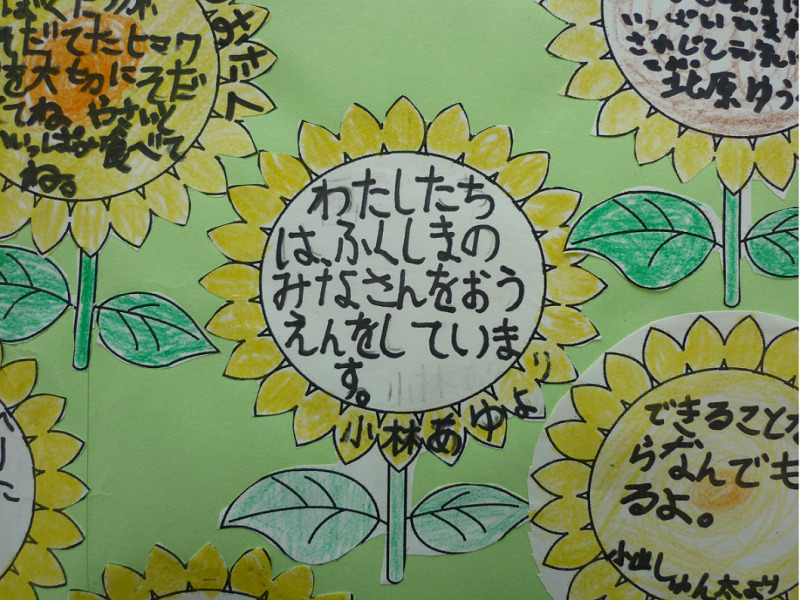 そだてたヒマワ
を大切にそだ
てね。やさいも
いっぱい食べて
ね。
わたしたち
は、ふくしまの
みなさんをおう
えんをしていま
す。
小林あゆより
北原ゆう
できることな
らなんでも
るよ。
小出しゅん太より